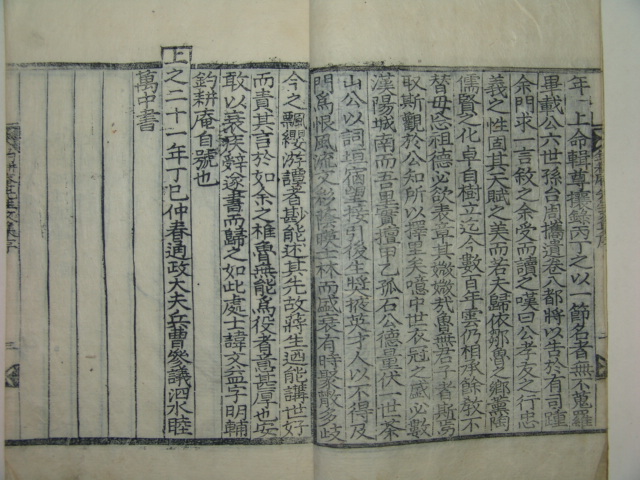 年 上命輯尊攘錄丙丁之以一節名者無不蒐羅
畢載公六世孫台周攜遺卷八都將以告於有司踵
余門求一言敘之余受而讀之嘆曰公孝友之行忠
義之性固其天賦之美而若夫歸依鄒魯之鄉薰陶
儒賢之化卓自樹立迄今數百年雲仍相承餘教不
替毋忝祖德必欲表章其媺媺哉魯無君子者斯焉
取斯觀於公知所以擇里矣噫中世衣冠之盛必數
漢陽城南而吾里實擅甲乙孤石公德量伏一世茶
山公以詞垣宿望接引後生將被英才人以不得及
門爲恨風流文彩蔭暎士林而盛衰有時聚散多歧
今之飄纓游譚者尠能述其先故蔣生迺能講世好
而責其言於如余之椎魯無能爲役者意甚厚也安
敢以衰疾辭遂書而歸之如此處士諱文益字明輔
釣耕庵自號也
上之二十一年丁巳仲春通政大夫兵曹參議泗水睦
萬中書